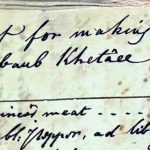 t for making
baub Khetâee
inced meat - - - -
bl: Pepper, ad lib